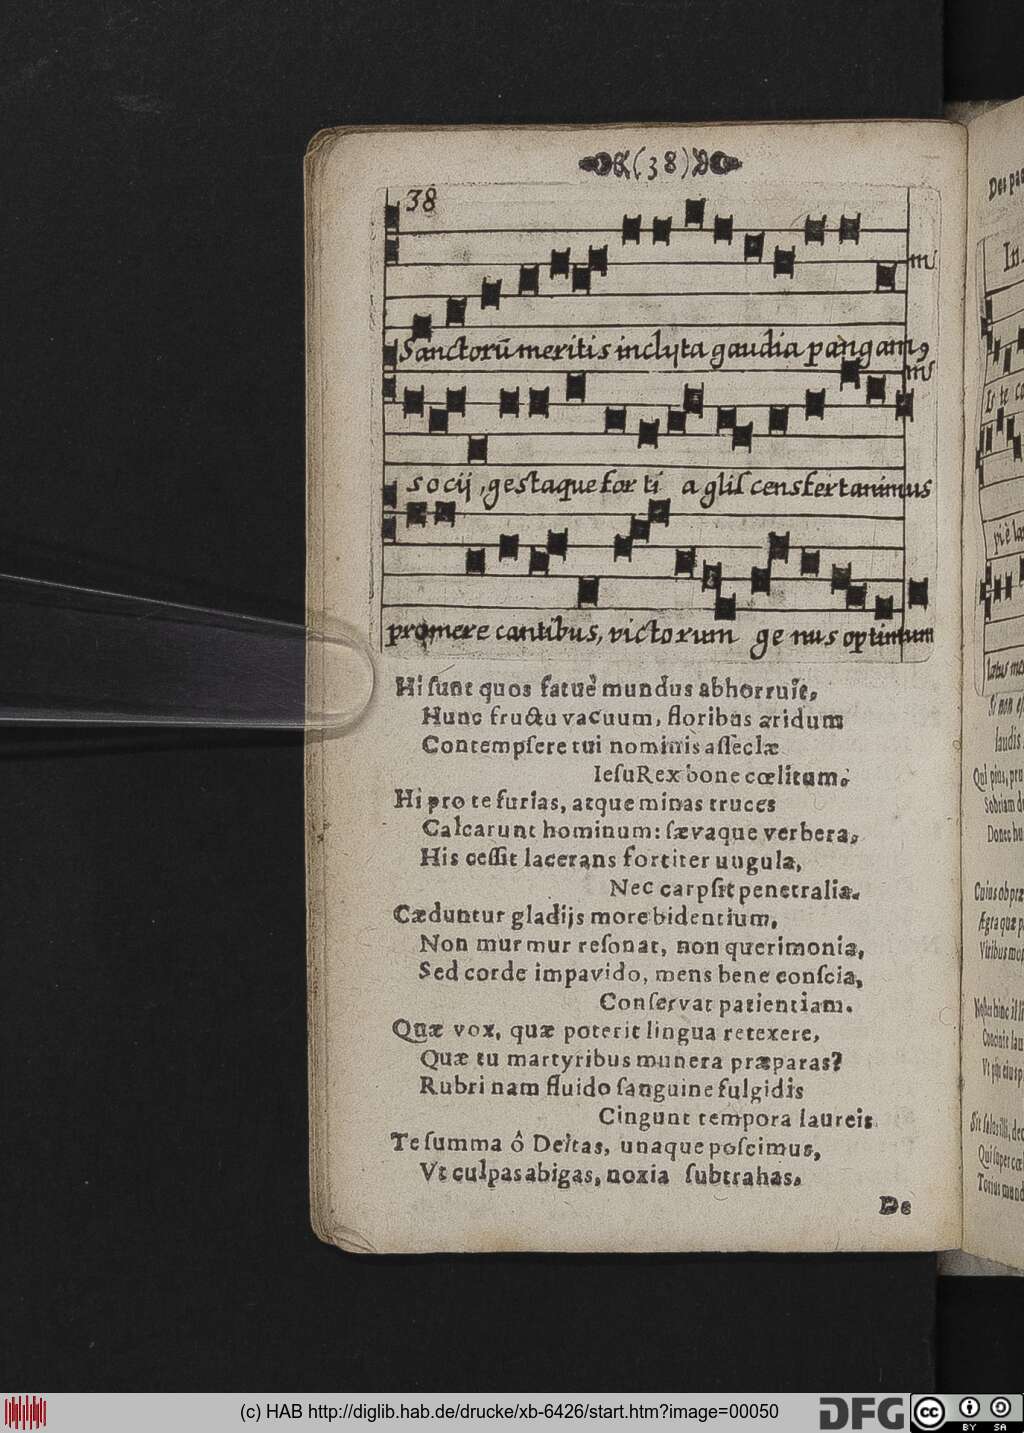 (38)
38
Sanctorū meritis inclyta gaudia pangam9
socij, gestaque forti a gliſcens fert animus
promere cantibus, victorum genus optimum
Hi ſunt quos fatuè mundus abhorruit,
Hunc fructu vacuum, floribus aridum
Contempſere tui nominis aſſeclæ
Ieſu Rex bone cœlitum.
Hi pro te furias, atque minas truces
Calcarunt hominum: ſævaque verbera,
His ceſſit lacerans fortiter ungula,
Nec carpſit penetralia.
Cæduntur gladijs more bidentium,
Non murmur reſonat, non querimonia,
Sed corde impavido, mens bene conſcia,
Conſervat patientiam.
Quæ vox, quæ poterit lingua retexere,
Quæ tu martyribus munera præparas?
Rubri nam fluido ſanguine fulgidis
Cingunt tempora laureis.
Te ſumma ô Deitas, unaque poſcimus,
Vt culpas abigas, noxia ſubtrahas.
De
(c) HAB http://diglib.hab.de/drucke/xb-6426/start.htm?image=00050
DFG
cc
BY SA